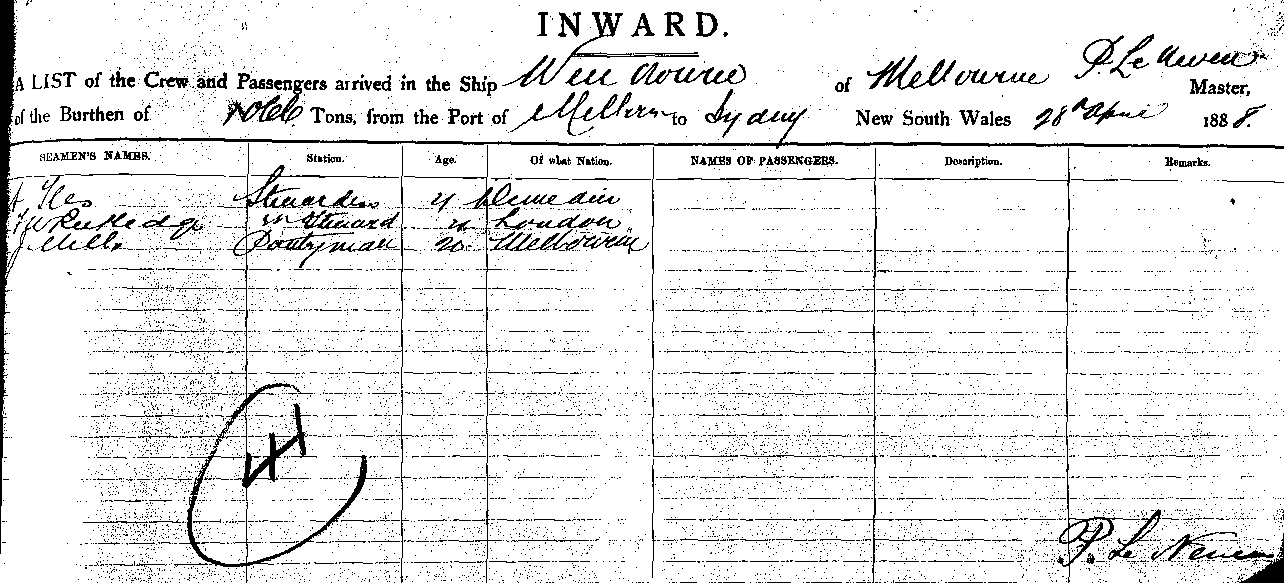 INWARD.
A LIST of the Crew and Passengers arrived in the Ship of Melbourne P. Le Neven Master,
of the Burthen of Tons, from the Port of Melbourn to Sydney New South Wales 28th April 1888.
SEAMEN'S NAMES. Station. Age. Of what Nation. NAMES OF PASSENGERS. Description. Remarks.
Iles Stewardess 21 Dunedin
Rutledge Steward London
J Mills Pantryman 20 Melbourne
4
P. Le Neven